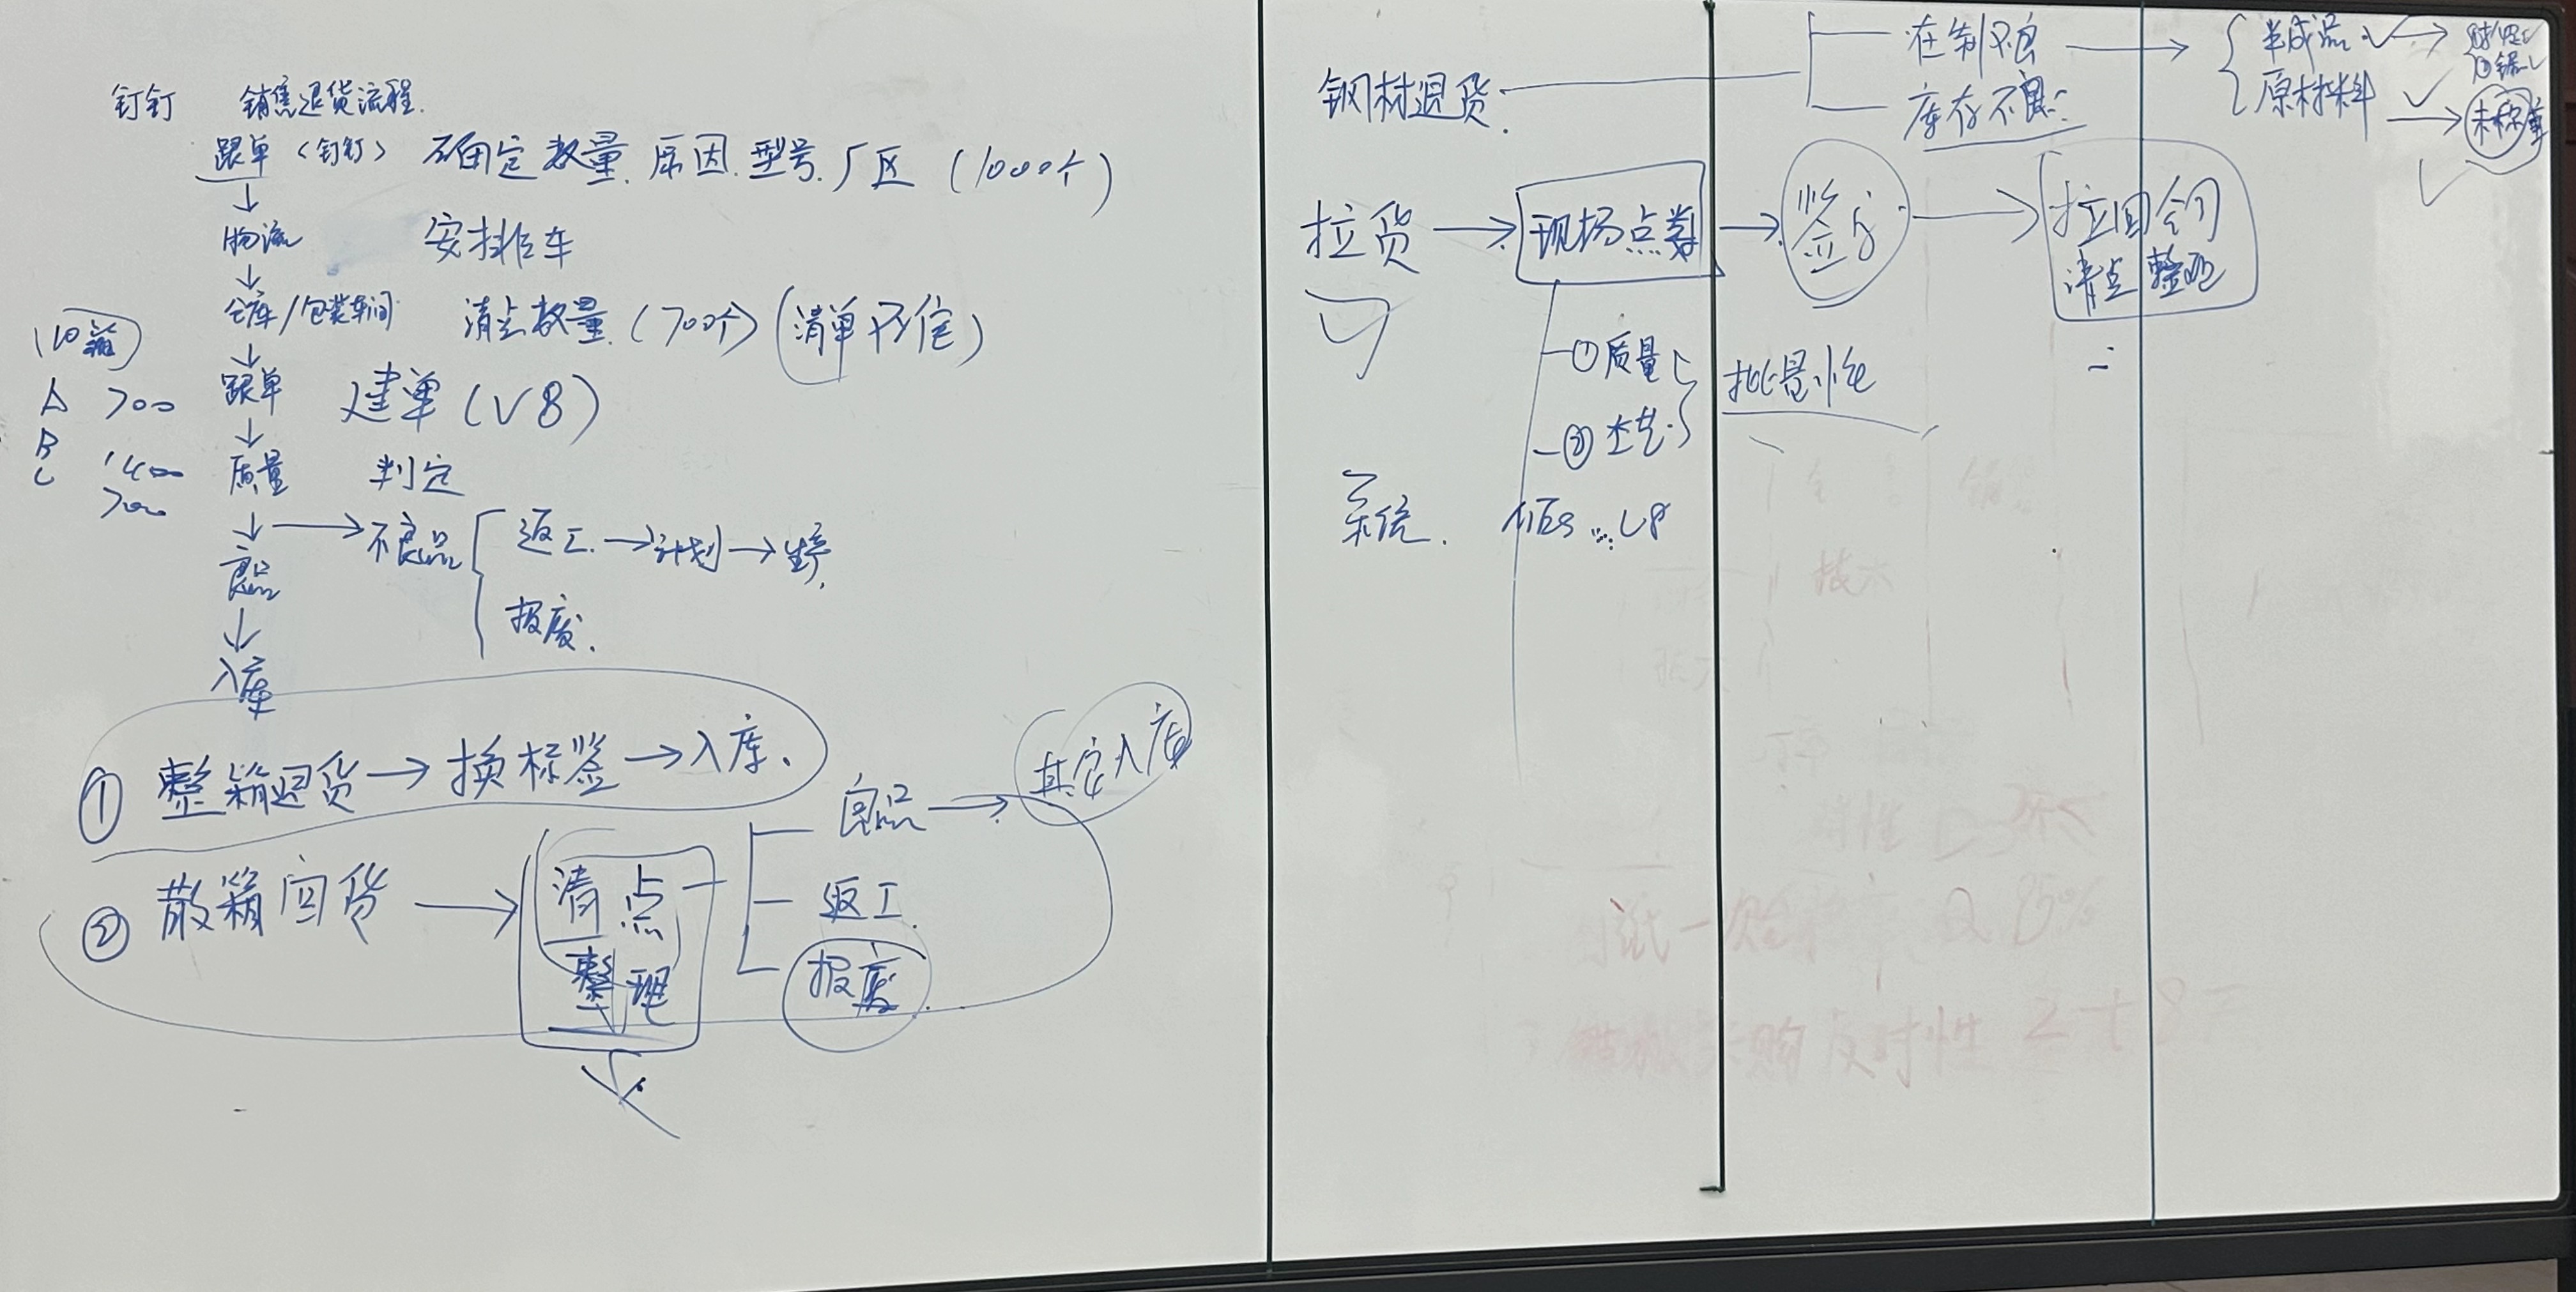 钉钉 销售退货流程.
跟单（钉钉） 确定数量.原因.型号.厂区（1000个）
↓
物流 安排车
↓
仓库/包装车间 清点数量（700个）（清单不准）
↓
跟单 建单（V8）
↓
质量 判定
↓ → 不良品 { 返工. → 计划 → 生产.
报废.
良品
↓
入库
(10箱)
A 700
B
C 1400
700
① 整箱退货 → 换标签 → 入库.
② 散箱回货 → 清点
整理
良品 → 其它入库
返工.
报废.
钢材退货.
在制不良 → { 半成品 ✓ →
原材料 ✓ →
库存不良.
拉货 → 现场点数 → 签字 → 拉回公司
清点整理
① 质量
② 工艺.
批量性
系统. MES ... U8